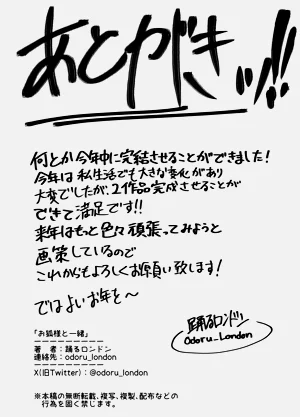 あとがきッ!!
何とか今年中に完結させることができました！
今年は私生活でも大きな変化があり
大変でしたが、2作品完成させることが
できて満足です!!
来年はもっと色々頑張ってみようと
画策しているので
これからもよろしくお願い致します！
ではよいお年を〜
踊るロンドン
Odoru_London
「お狐様と一緒」
ーーーーーーーーー
著　者：踊るロンドン
連絡先：odoru_london
ーーーーーーーーー
X(旧Twitter)：@odoru_london
※本稿の無断転載、複写、複製、配布などの
行為を固く禁じます。